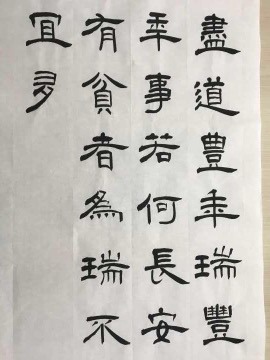 盡道豐年瑞豐
年事若何長安
有貧者為瑞不
宜多